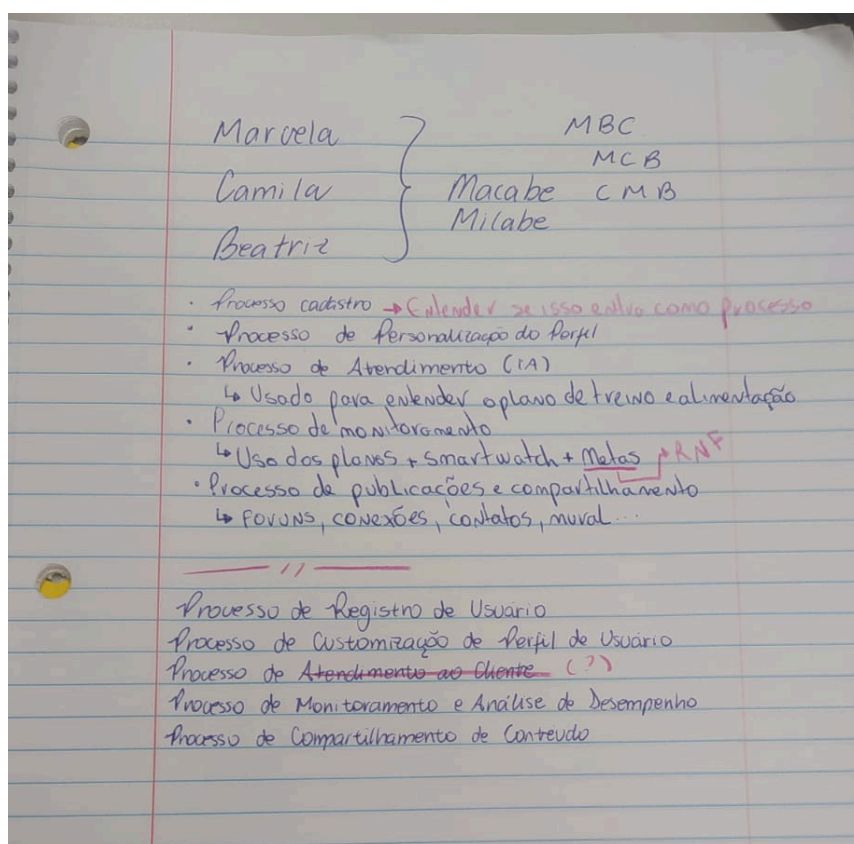 Marcela
MBC
MCB
Camila
Macabe CMB
Milabe
Beatriz
· Processo cadastro → Entender se isso entra como processo
· Processo de Personalização do Perfil
· Processo de Atendimento (IA)
↳ Usado para entender o plano de treino e alimentação
· Processo de monitoramento
↳ Uso dos planos + smartwatch + Metas → RNF
· Processo de publicações e compartilhamento
↳ Foruns, conexões, contatos, mural...
— // —
Processo de Registro de Usuário
Processo de Customização de Perfil de Usuário
Processo de Atendimento ao Cliente (?)
Processo de Monitoramento e Análise de Desempenho
Processo de Compartilhamento de Conteúdo